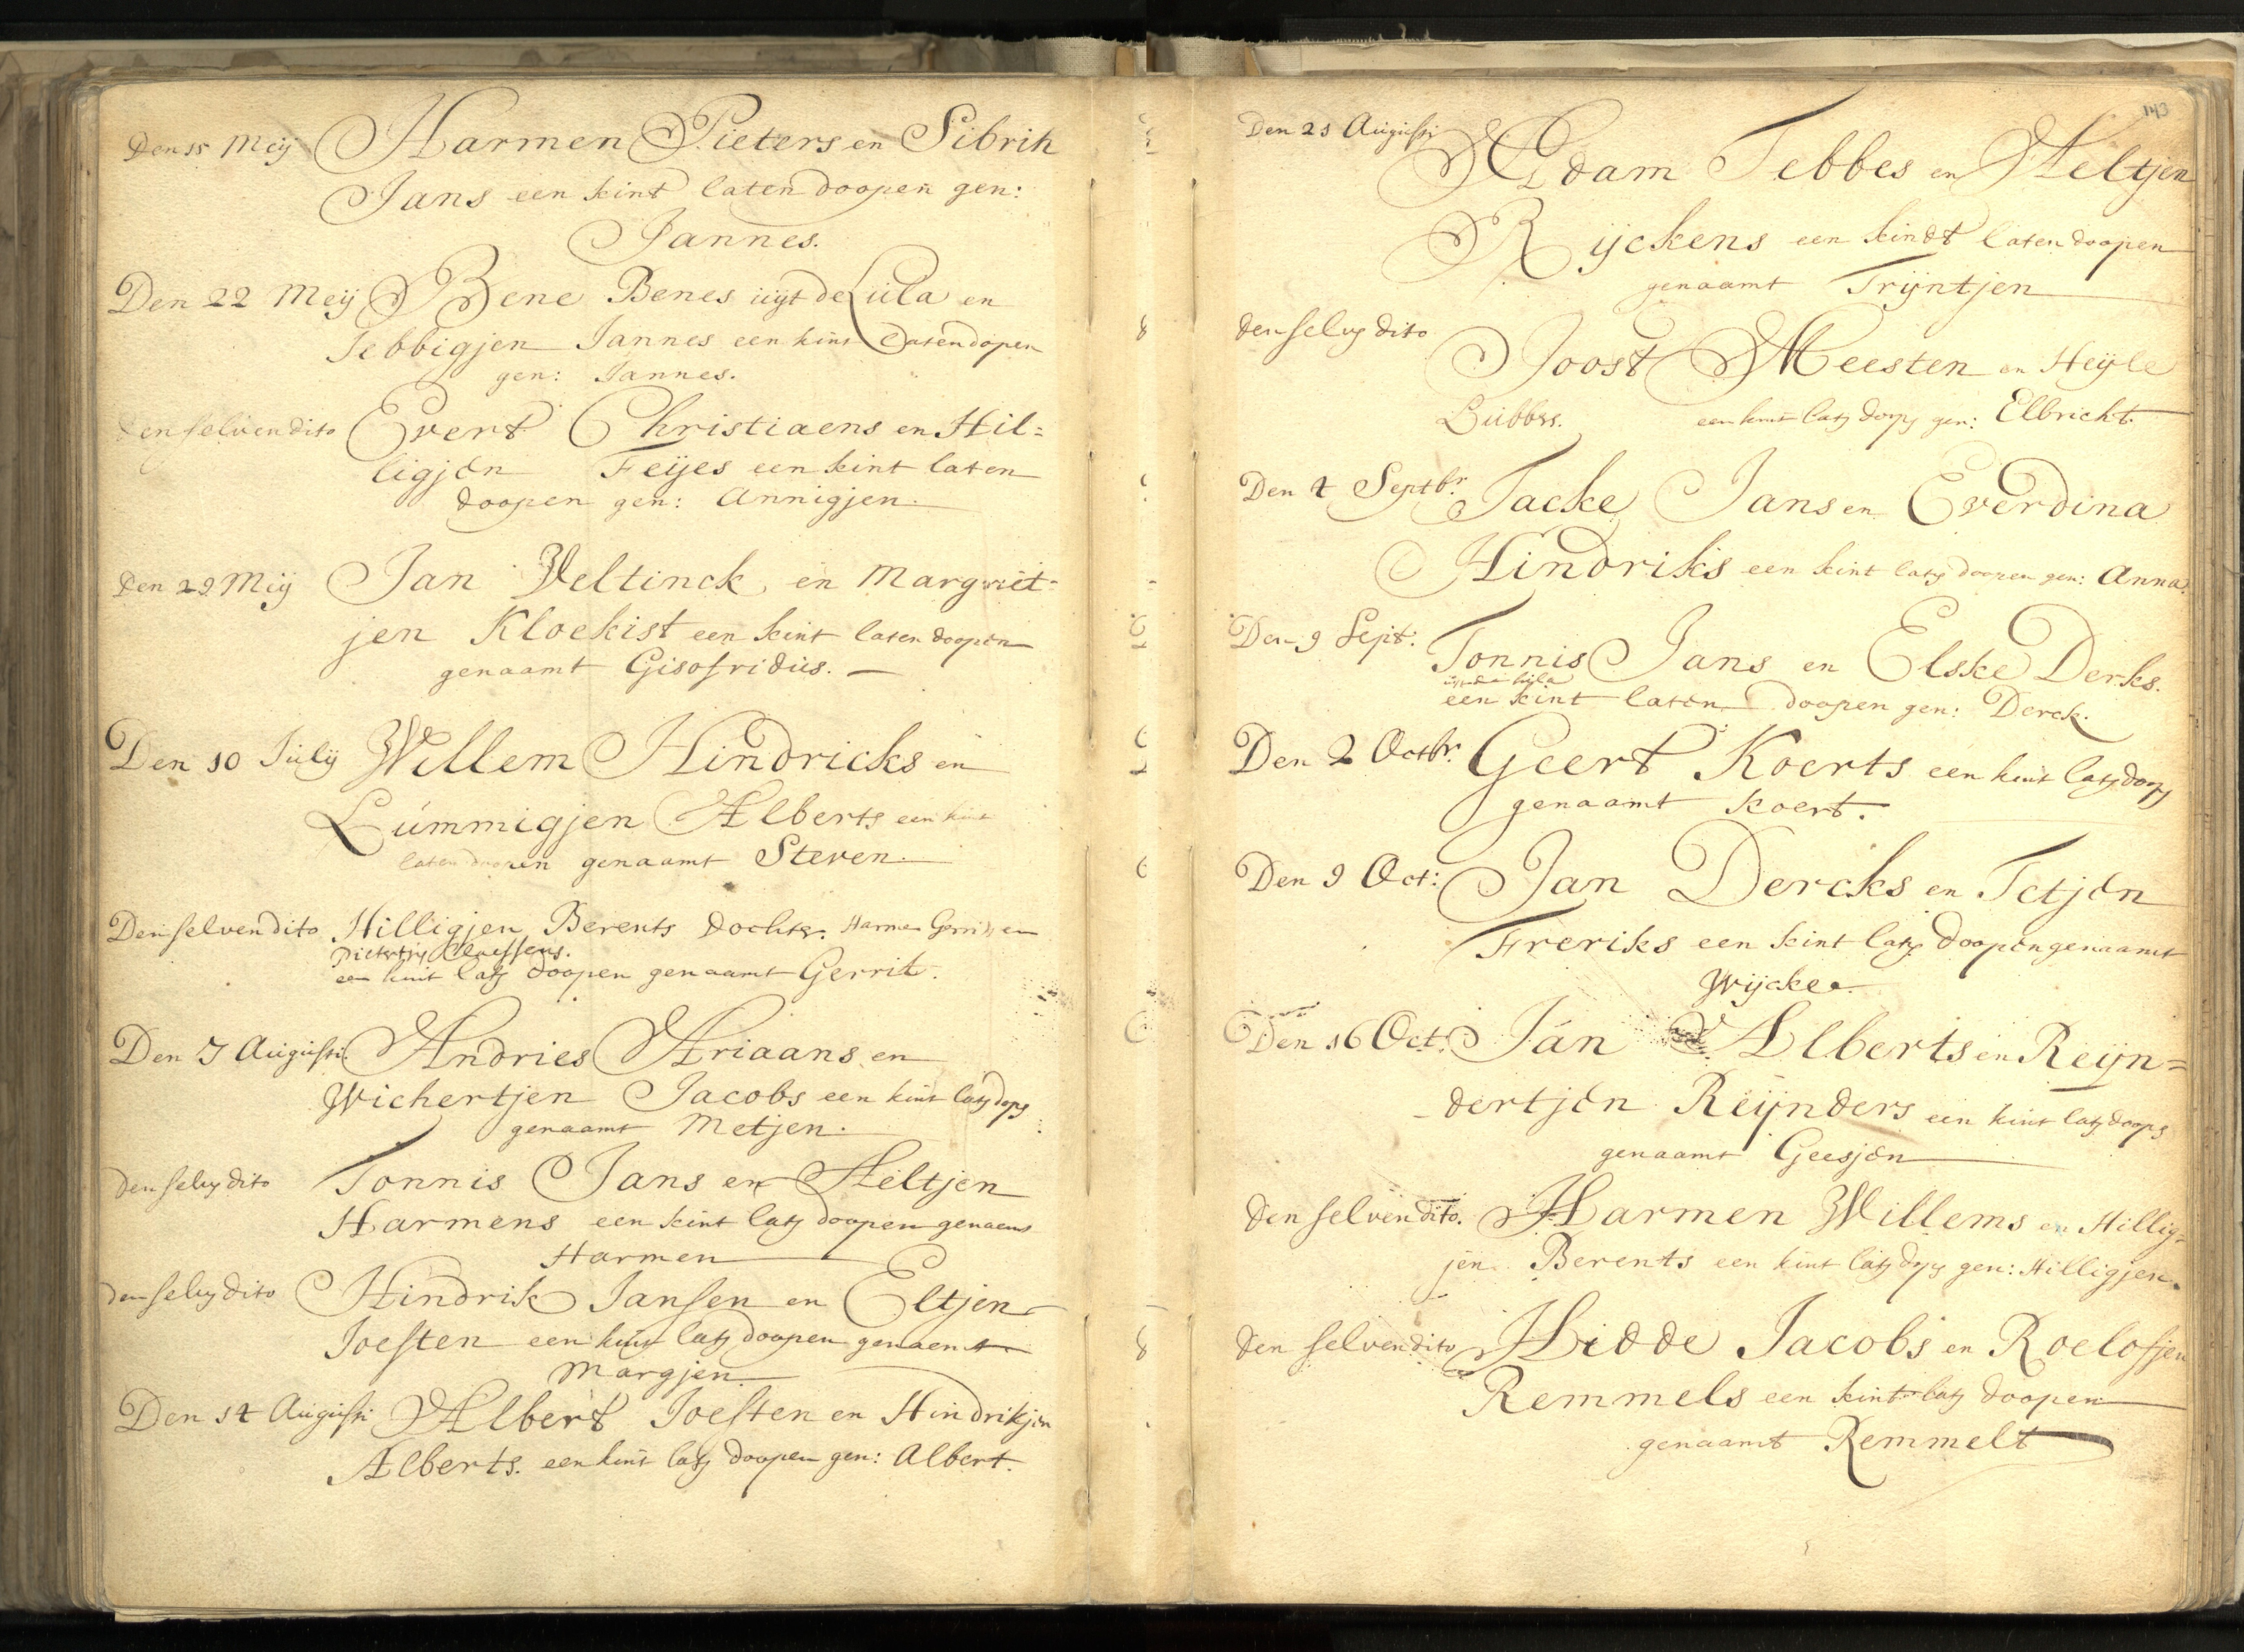 Den 15 Meij Harmen Pieters en Sibrih
Jans een kint laten doopen gen:
Jannes.
Den 22 Meij Bene Benes uijt de Lula en
Jebbigjen Jannes een kint laten dopen
gen: Jannes.
den selven dito Evert Christiaens en Hil=
ligjen Feijes een kint laten
doopen gen: Annigjen.
Den 29 Meij Jan Veltinck en Margriet-
jen Kloekist een kint laten doopen
genaamt Gisofridus.
Den 10 Julij Willem Hindricks en
Lummigjen Alberts een kint
laten doopen genaamt Steven.
Den selven dito Hilligjen Berents dochter. Harmen Gerrits en
Claessens.
een kint latē doopen genaamt Gerrit.
Den 7 Augusti Andries Ariaans en
Wichertjen Jacobs een kint latē doopē
genaamt Metjen.
den selvē dito Tonnis Jans en Aeltjen
Harmens een kint latē doopen genaemt
Harmen
den selvē dito Hindrik Jansen en Eltjen
Joesten een kint latē doopen genaemt
Margjen
Den 14 Augusti Albert Joesten en Hindrikjen
Alberts. een kint latē doopen gen: Albert.
143
Den 21 Augusti Adam Tebbes en Aeltjen
Rijckens een kindt laten doopen
genaamt Trijntjen
den selvē dito
Joost Meesten en Heijle
Lubbers. een kint latē doopē gen: Elbricht.
Den 4 Septbr. Tacke Jans en Everdina
Hindriks een kint latē doopen gen: Anna.
Den 9 Sept: Tonnis Jans en Elske Derks.
uijt de lula
een kint laten doopen gen: Derck.
Den 2 Octbr. Geert Koerts een kint latē doopē
genaamt Koert.
Den 9 Oct: Jan Dercks en Tetjen
Freriks een kint latē doopen genaamt
Wijcke.
Den 16 Oct. Jan Alberts en Reijn=
dertjen Reijnders een kint latē doopē
genaamt Geesjen
den selven dito. Harmen Willems en Hillig=
jen Berents een kint latē doopē gen: Hilligjen.
den selven dito Hidde Jacobs en Roelofjen
Remmels een kint latē doopen
genaamt Remmelt